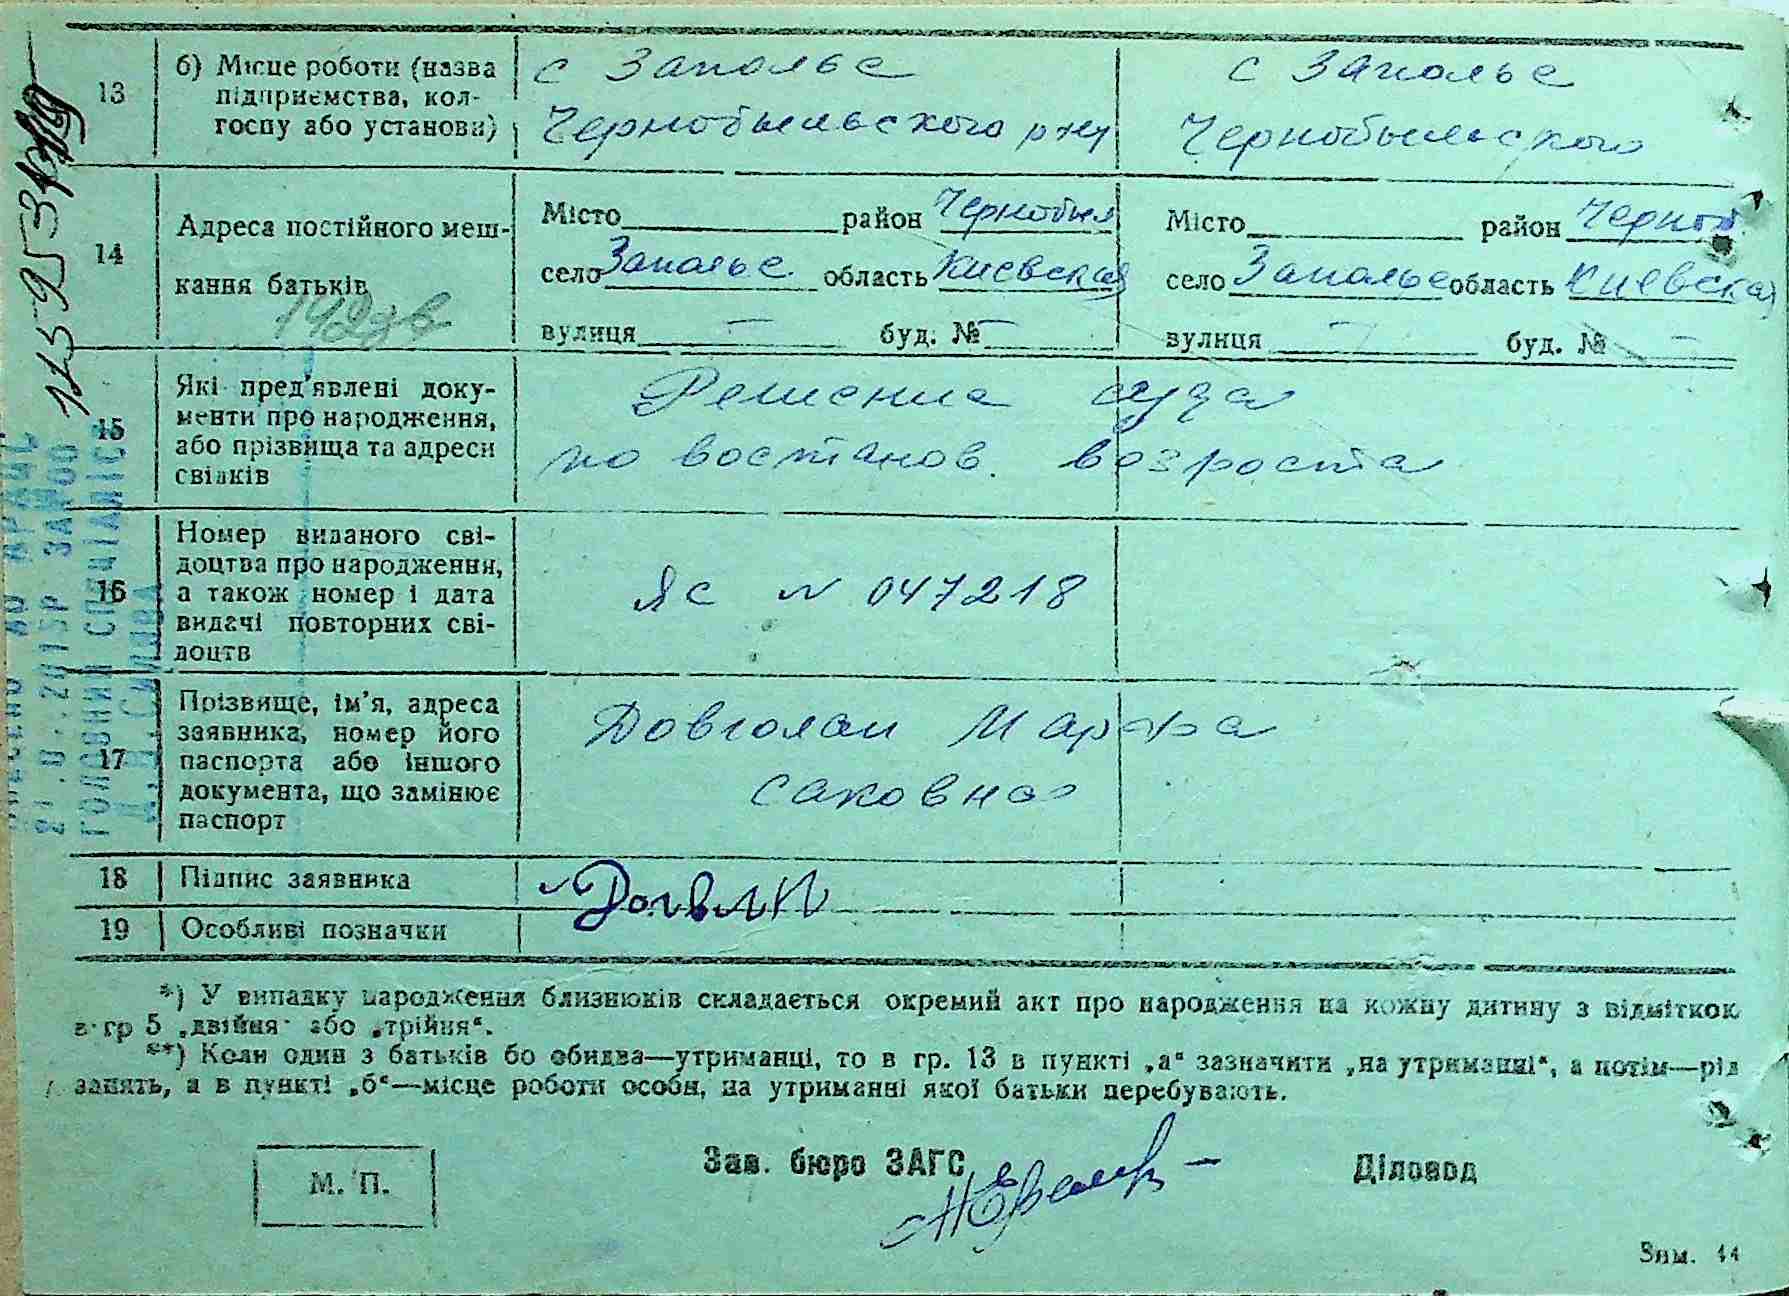 13 б) Місце роботи (назва підприємства, кол-госпу або установи)
с Заполье
Чернобыльского р-ну
с Заполье
Чернобыльского
14 Адреса постійного меш-
кання батьків
Місто район Чернобыл
село Заполье область Киевская
вулиця — буд. № —
Місто район Черноб.
село Заполье область Киевская
вулиця — буд. № —
15 Які пред'явлені доку-
менти про народження,
або прізвища та адреси
свідків
Решение суда
по востанов. возроста
16 Номер виданого сві-
доцтва про народження,
а також номер і дата
видачі повторних сві-
доцтв
ЯС № 047218
17 Прізвище, ім'я, адреса
заявника, номер його
паспорта або іншого
документа, що замінює
паспорт
Довголап Марфа
саковна
18 Підпис заявника
19 Особливі позначки
*) У випадку народження близнюків складається окремий акт про народження на кожну дитину з відміткою
в гр 5 „двійня" або „трійня".
**) Коли один з батьків бо обидва—утриманці, то в гр. 13 в пункті „а" зазначити „на утриманні", а потім—рід
занять, а в пункті „б"—місце роботи особи, на утриманні якої батьки перебувають.
М. П.
Зав. бюро ЗАГС
Діловод
Зам. 44